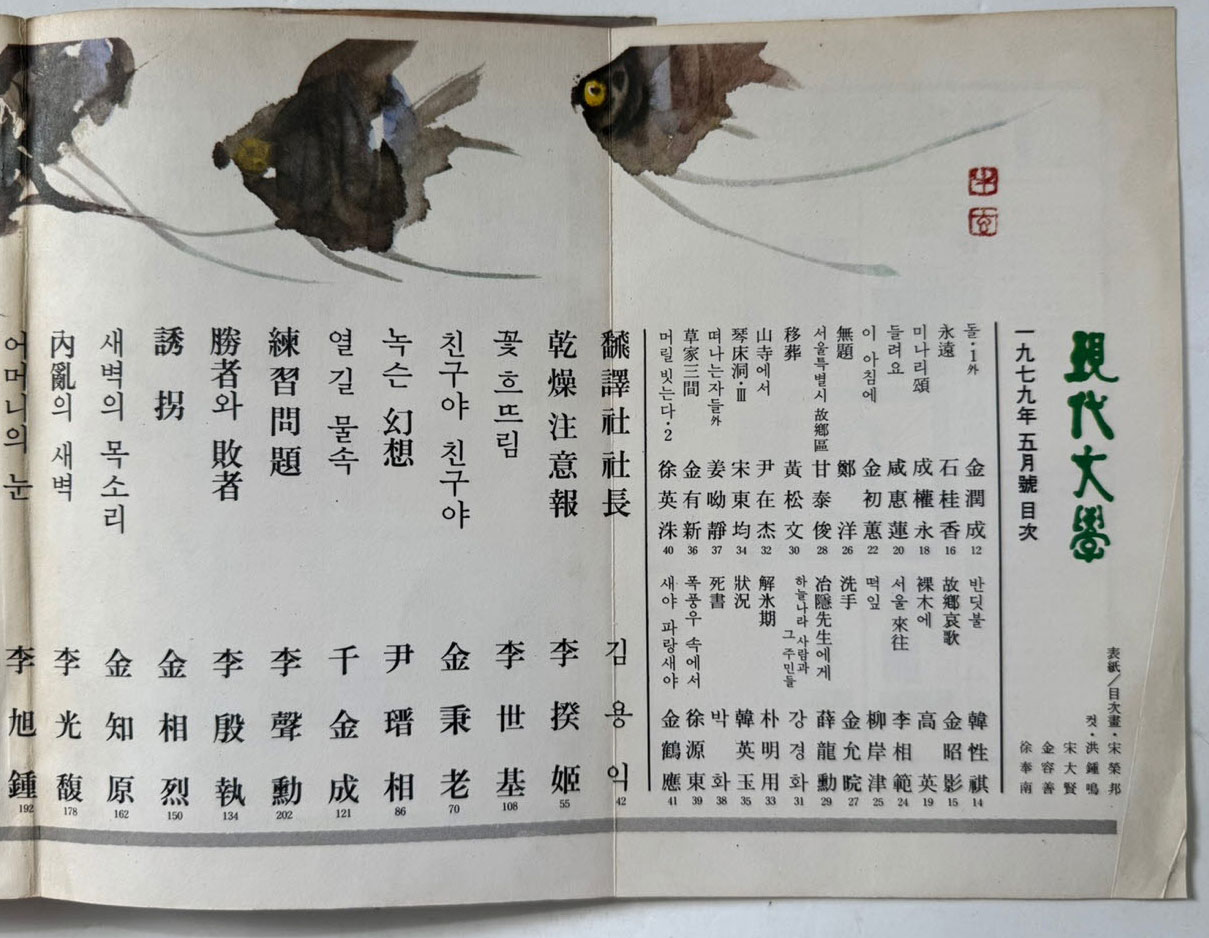 現代文學
一九七九年 五月號 目次
表紙／目次畫・宋榮邦
컷・洪鍾鳴
宋大賢
金容善
徐奉南
돌・1外 金潤成 12
永遠 石桂香 16
미나리頌 成權永 18
들려요 咸惠蓮 20
이 아침에 金初蕙 22
無題 鄭洋 26
서울특별시 故鄕區 甘泰俊 28
移葬 黃松文 30
山寺에서 尹在杰 32
琴床洞・Ⅲ 宋東均 34
떠나는자들外 姜呦靜 37
草家三間 金有新 36
머릴 빗는다・2 徐英洙 40
반딧불 韓性祺 14
故鄕哀歌 金昭影 15
裸木에 高英 19
서울 來往 李相範 24
떡잎 柳岸津 25
洗手 金允晥 27
冶隱先生에게 薛龍勳 29
하늘나라 사람과 그 주민들 강경화 31
解氷期 朴明用 33
狀況 韓英玉 35
死書 박화 38
폭풍우 속에서 徐源東 39
새야 파랑새야 金鶴應 41
飜譯社社長 김용익 42
乾燥注意報 李揆姬 55
꽃 흐뜨림 李世基 108
친구야 친구야 金秉老 70
녹슨 幻想 尹瑨相 86
열 길 물속 千金成 121
練習問題 李聲勳 202
勝者와 敗者 李殷執 134
誘拐 金相烈 150
새벽의 목소리 金知原 162
內亂의 새벽 李光馥 178
어머니의 눈 李旭鍾 192